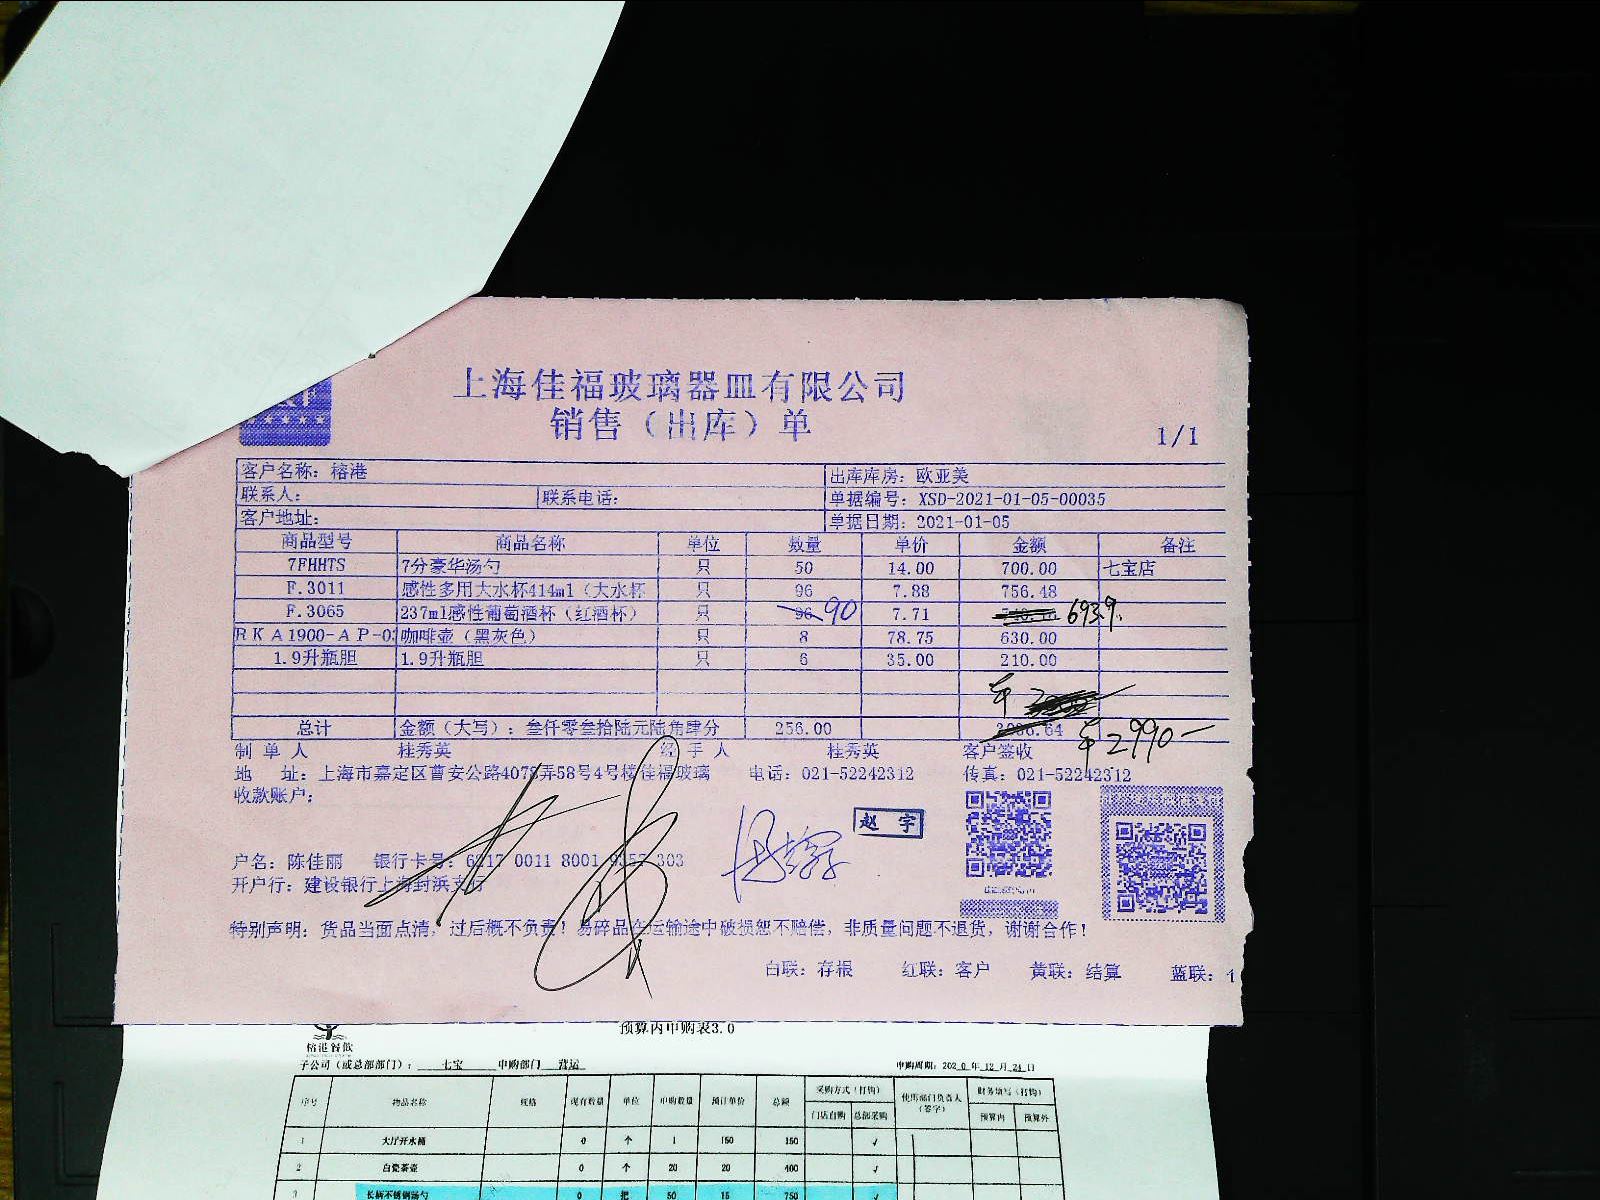 上海佳福玻璃器皿有限公司
销售（出库）单
1/1
客户名称：榕港 出库库房：欧亚美
联系人： 联系电话： 单据编号：XSD-2021-01-05-00035
客户地址： 单据日期：2021-01-05
商品型号 商品名称 单位 数量 单价 金额 备注
7FHHTS 7分豪华汤勺 只 50 14.00 700.00 七宝店
F.3011 感性多用大水杯414ml（大水杯 只 96 7.88 756.48
F.3065 237ml感性葡萄酒杯（红酒杯） 只 96 90 7.71 693.9
RKA1900-AP-0 咖啡壶（黑灰色） 只 8 78.75 630.00
1.9升瓶胆 1.9升瓶胆 只 6 35.00 210.00
总计 金额（大写）：叁仟零叁拾陆元陆角肆分 256.00 3036.64 ¥2990-
制单人 桂秀英 经手人 桂秀英 客户签收
地 址：上海市嘉定区曹安公路4078弄58号4号楼佳福玻璃 电话：021-52242312 传真：021-52242312
收款账户：
赵宇
户名：陈佳丽 银行卡号：6217 0011 8001 9357 303
开户行：建设银行上海封浜支行
特别声明：货品当面点清，过后概不负责！易碎品在运输途中破损恕不赔偿，非质量问题不退货，谢谢合作！
白联：存根 红联：客户 黄联：结算 蓝联：
预算内申购表3.0
榕港餐饮
子公司（或总部部门）： 七宝 申购部门 营运 申购周期：2020 年 12 月 24 日
序号 物品名称 规格 现有数量 单位 申购数量 预订单价 总额 采购方式（打钩） 使用部门负责人（签字） 财务填写（打钩）
门店自购 总部采购 预算内 预算外
1 大厅开水桶 0 个 1 150 150 √
2 白瓷茶壶 0 个 20 20 400 √
3 长柄不锈钢汤勺 0 把 50 15 750 √